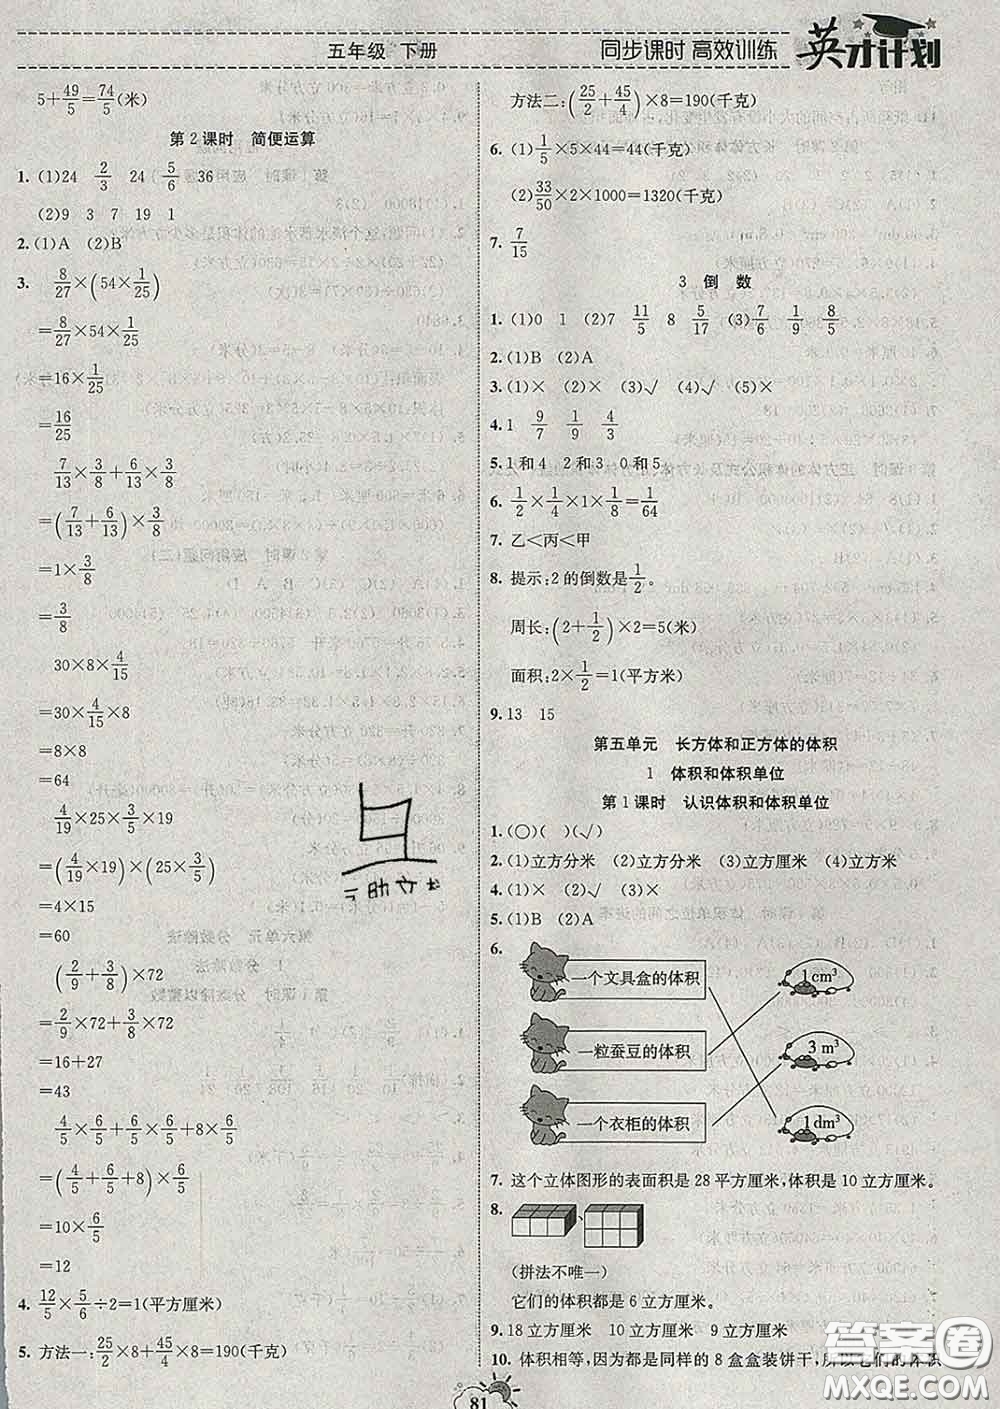 五年级 下册
同步课时 高效训练 英才计划
5+49/5=74/5(米)
第2课时 简便运算
1. (1)24 2/3 24 5/6 36
(2)9 3 7 19 1
2. (1)A (2)B
3. 8/27×(54×1/25)
=8/27×54×1/25
=16×1/25
=16/25
7/13×3/8+6/13×3/8
=(7/13+6/13)×3/8
=1×3/8
=3/8
30×8×4/15
=30×4/15×8
=8×8
=64
4/19×25×3/5×19
=(4/19×19)×(25×3/5)
=4×15
=60
(2/9+3/8)×72
=2/9×72+3/8×72
=16+27
=43
4/5×6/5+6/5×6/5+8×6/5
=(4/5+6/5+8)×6/5
=10×6/5
=12
4. 12/5×5/6÷2=1(平方厘米)
5. 方法一:25/2×8+45/4×8=190(千克)
方法二:(25/2+45/4)×8=190(千克)
6. (1)1/5×5×44=44(千克)
(2)33/50×2×1000=1320(千克)
7. 7/15
3 倒 数
1. (1)0 1 (2)7 11/5 8 5/17 (3)7/6 1/9 8/5
2. (1)B (2)A
3. (1)× (2)× (3)√ (4)√ (5)×
4. 1 9/7 1/9 4/3
5. 1和4 2和3 0和5
6. 1/2×1/4×1×1/8=1/64
7. 乙<丙<甲
8. 提示:2的倒数是1/2。
周长:(2+1/2)×2=5(米)
面积:2×1/2=1(平方厘米)
9. 13 15
第五单元 长方体和正方体的体积
1 体积和体积单位
第1课时 认识体积和体积单位
1. (○)( )(√)
2. (1)立方分米 (2)立方分米 (3)立方厘米 (4)立方米
4. (1)× (2)√ (3)×
5. (1)B (2)A
6.
一个文具盒的体积 1cm³
一粒蚕豆的体积 3 m³
一个衣柜的体积 1dm³
7. 这个立体图形的表面积是28平方厘米,体积是10立方厘米。
8. 、
(拼法不唯一)
它们的体积都是6立方厘米。
9. 18立方厘米 10立方厘米 9立方厘米
10. 体积相等,因为都是同样的8盒盒装饼干,所以它们的体积
81
答案圈
MXQE.COM